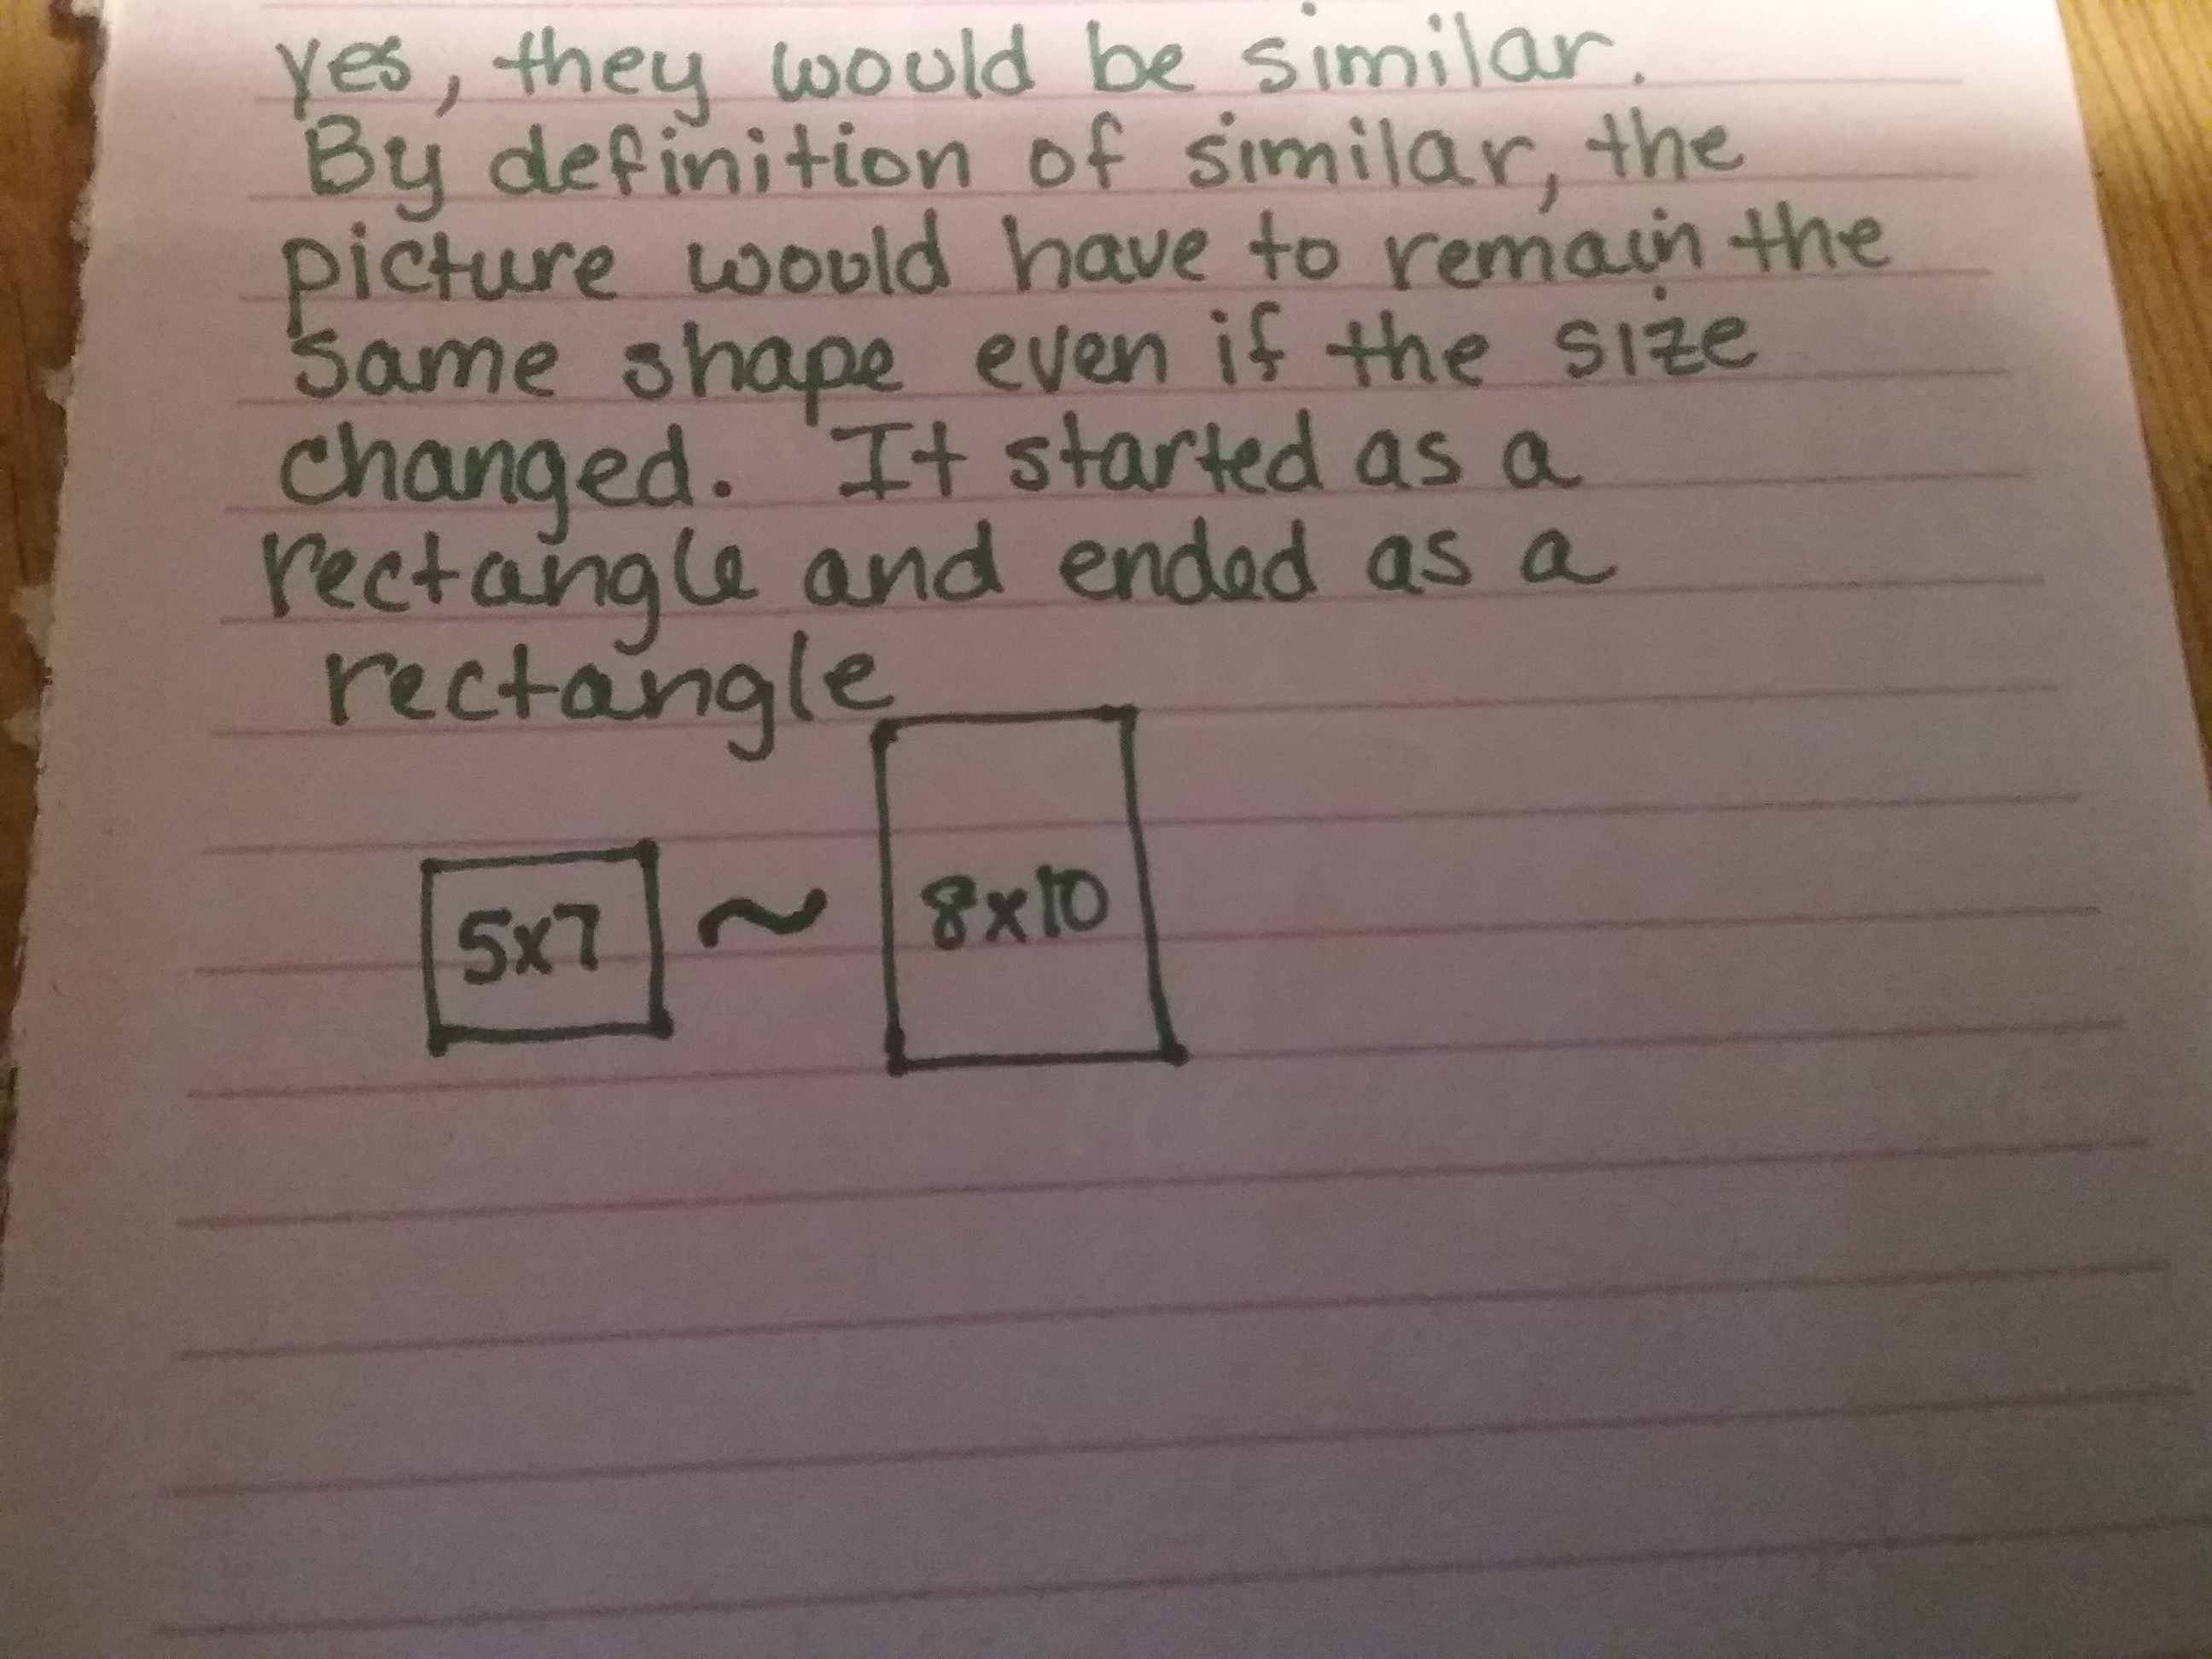 yes, they would be similar.
By definition of similar, the
picture would have to remain the
same shape even if the size
changed. It started as a
rectangle and ended as a
rectangle
5x7 ~ 8x10